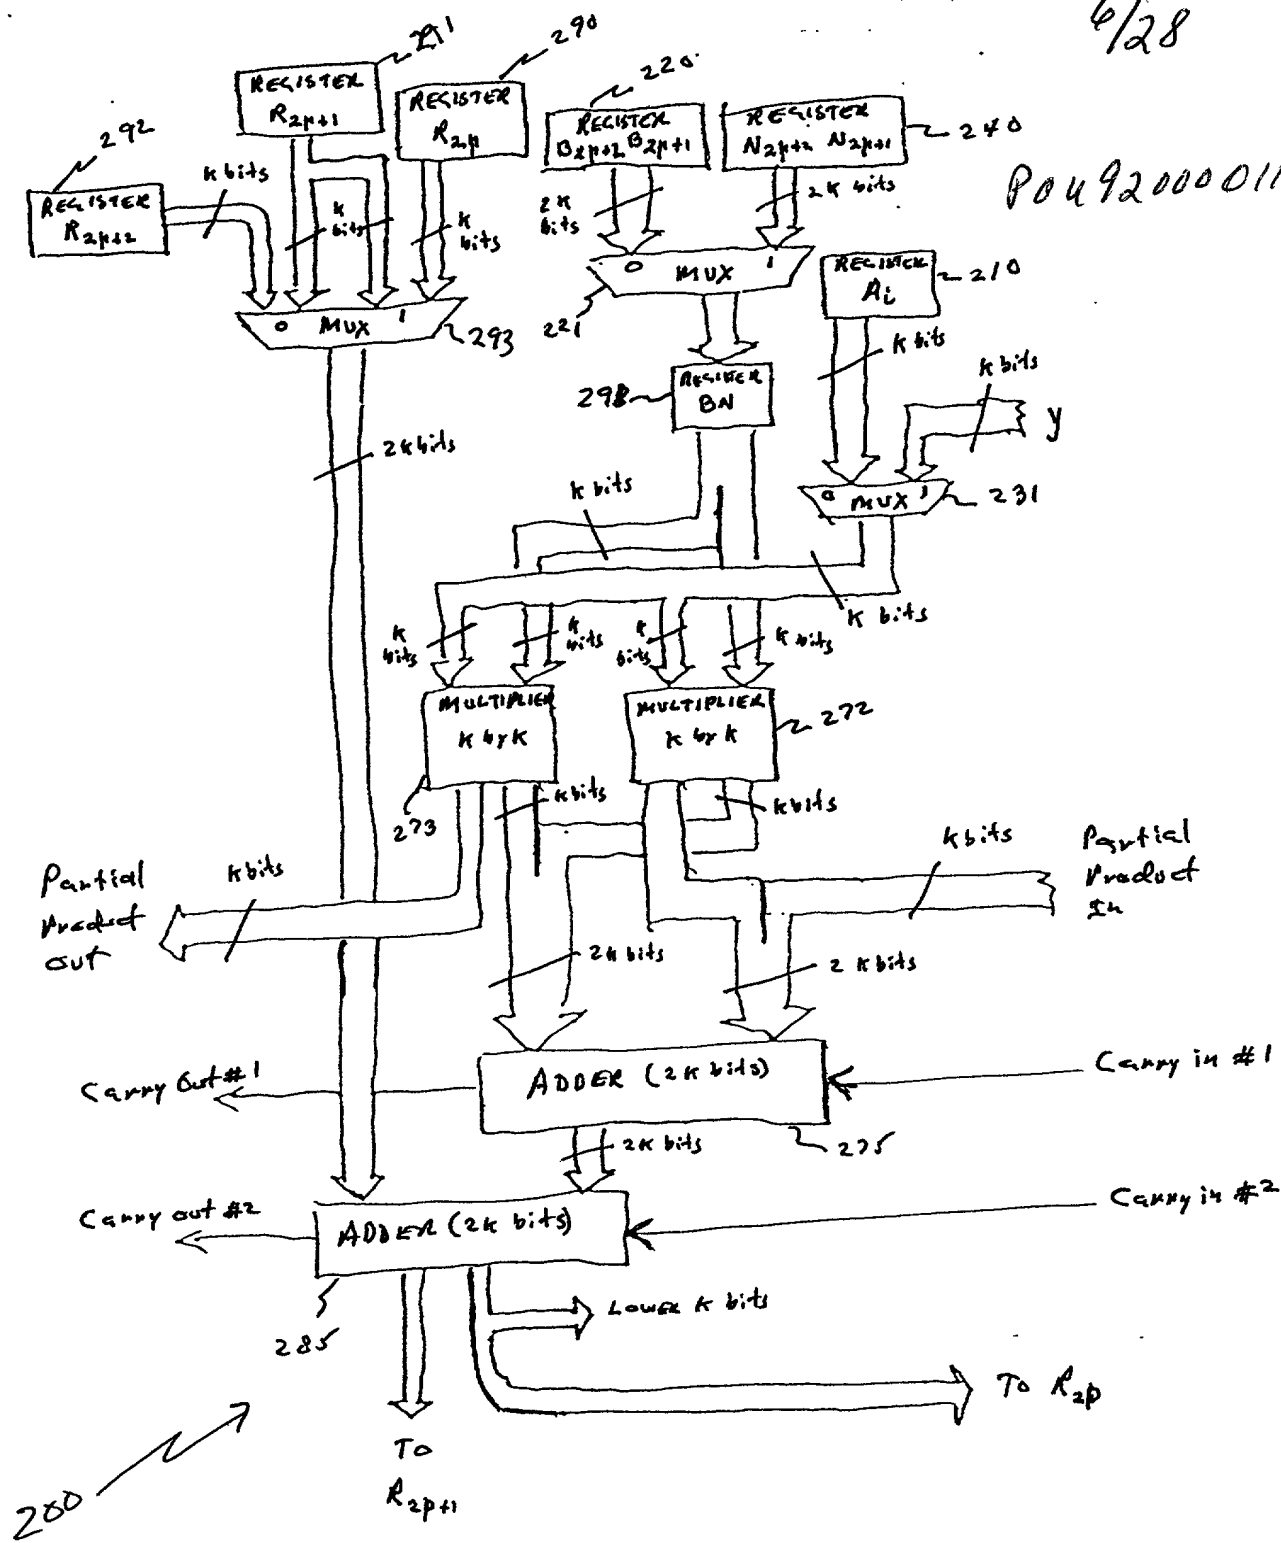 6/28
291
290
220
292
REGISTER
R2p+1
REGISTER
R2p
REGISTER
B2p+2 B2p+1
REGISTER
N2p+2 N2p+1
240
POU92000011
REGISTER
R2p+2
k bits
k bits
k bits
2k bits
2k bits
0 MUX 1
293
0 MUX 1
221
REGISTER
Ai
210
k bits
k bits
y
298
REGISTER
BN
2k bits
k bits
0 MUX 1
231
k bits
k bits
k bits
k bits
k bits
MULTIPLIER
k by k
273
MULTIPLIER
k by k
272
k bits
k bits
Partial
Product
out
k bits
k bits
Partial
Product
In
2k bits
2 k bits
Carry Out #1
ADDER (2k bits)
Carry in #1
275
2k bits
Carry out #2
ADDER (2k bits)
Carry in #2
285
LOWER k bits
To R2p
To
R2p+1
200